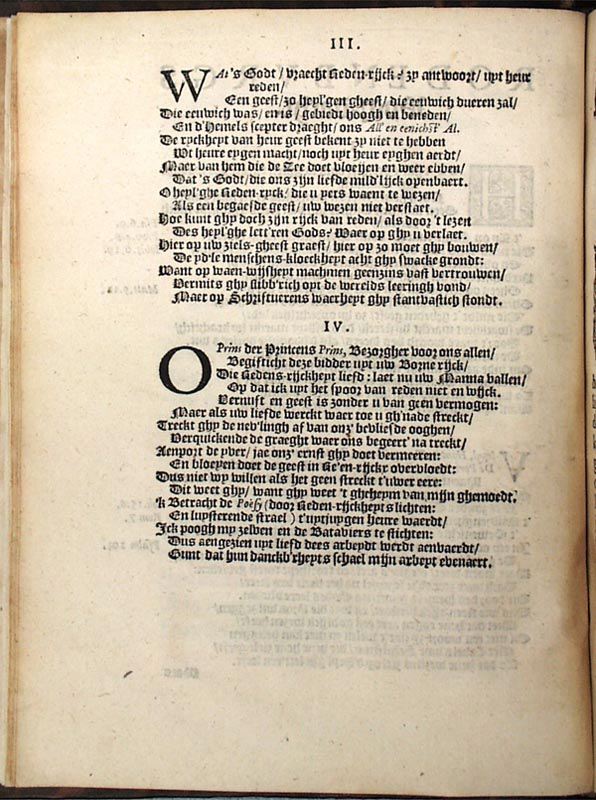 III.
WAt's Godt / vraecht Reden-rijck? zy antwoort / uyt heur
reden /
Een geest / zo heyl'gen gheest / die eeuwich dueren zal /
Die eeuwich was / en is / gebiedt hoogh en beneden /
En d'Hemels scepter draeght / ons All' en eenichst' Al.
De ryckheyt van heur geest bekent zy niet te hebben
Wt heure eygen macht / noch uyt heur eyghen aerdt /
Maer van hem die de Zee doet vloeijen en weer ebben /
Dat 's Godt / die ons zijn liefde mild'lijck openbaert.
O heyl'ghe Reden-ryck / die u yets waent te wezen /
Als een begaefde geest / uw wezen niet verstaet.
Hoe kunt ghy doch zijn rijck van reden / als door 't lezen
Des heyl'ghe lett'ren Gods? Waer op ghy u verlaet.
Hier op uw ziels-gheest graest / hier op zo moet ghy bouwen /
De yd'le menschens-kloeckheyt acht ghy swacke grondt:
Want op waen-wijsheyt machmen geenzins vast vertrouwen /
Vermits ghy slibb'rich opt de werelds leeringh vond /
Maer op Schriftuerens waerheyt ghy standvastich stondt.
IV.
OPrins der Princens Prins, Bezorgher voor ons allen /
Begifticht deze bidder uyt uw Borne rijck /
Die Redens-rijckheyt liefd: laet nu uw Manna vallen /
Op dat ick uyt het spoor van reden niet en wijck.
Vernuft en geest is zonder u van geen vermogen:
Maer als uw liefde werckt waer toe u gh'nade streckt /
Treckt ghy de nev'lingh af van onz' bevliesde ooghen /
Verquickende de graeght waer ons begeert' na treckt /
Aenport de yver / jae onz' ernst ghy doet vermeeren:
En bloeyen doet de geest in Re'en-rijckx overvloedt:
Dus niet wy willen als het geen streckt t'uwer eere:
Dit weet ghy / want ghy weet 't gheheym van mijn ghemoedt.
'k Betracht de Poësy (door Reden-rijckheyts lichten:
En luysterende strael) t'uytjuygen heure waerdt /
Ick poogh my zelven en de Bataviers te stichten:
Dus aengezien uyt liefd dees arbeydt werdt aenvaerdt /
Gunt dat hun danckb'rheyts schael mijn arbeyt evenaert.